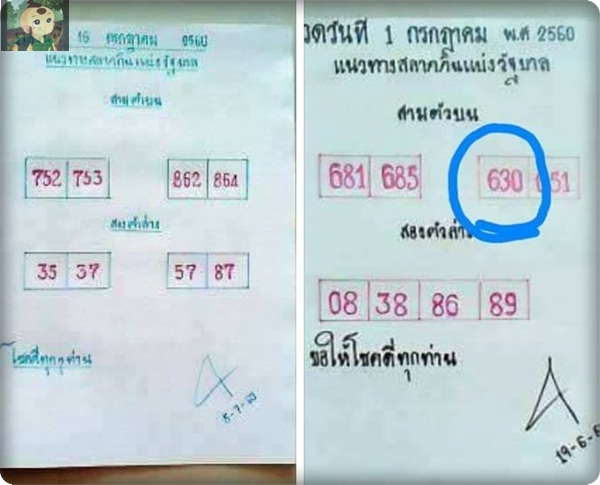 16 กรกฎาคม 2560
แนวทางสลากกินแบ่งรัฐบาล
สามตัวบน
752 753 862 864
สองตัวล่าง
35 37 57 87
โชคดีทุกๆท่าน
วดวันที่ 1 กรกฎาคม พ.ศ 2560
แนวทางสลากกินแบ่งรัฐบาล
สามตัวบน
681 685 630 651
สองตัวล่าง
08 38 86 89
ขอให้โชคดีทุกท่าน
19-6-6